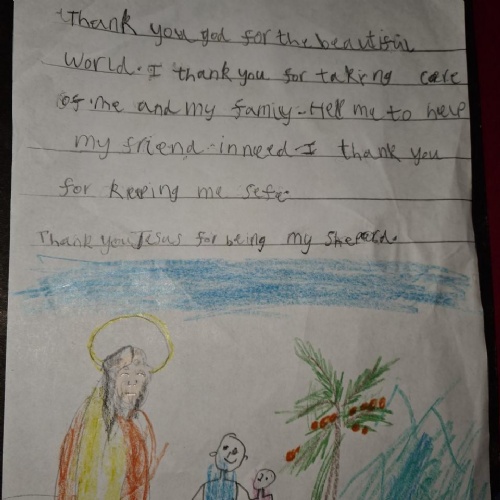 Thank you god for the beautiful
world. I thank you for taking care
of me and my family. Help me to help
my friend in need. I thank you
for keeping me sefe.
Thank you Jesus for being my Sheperd.